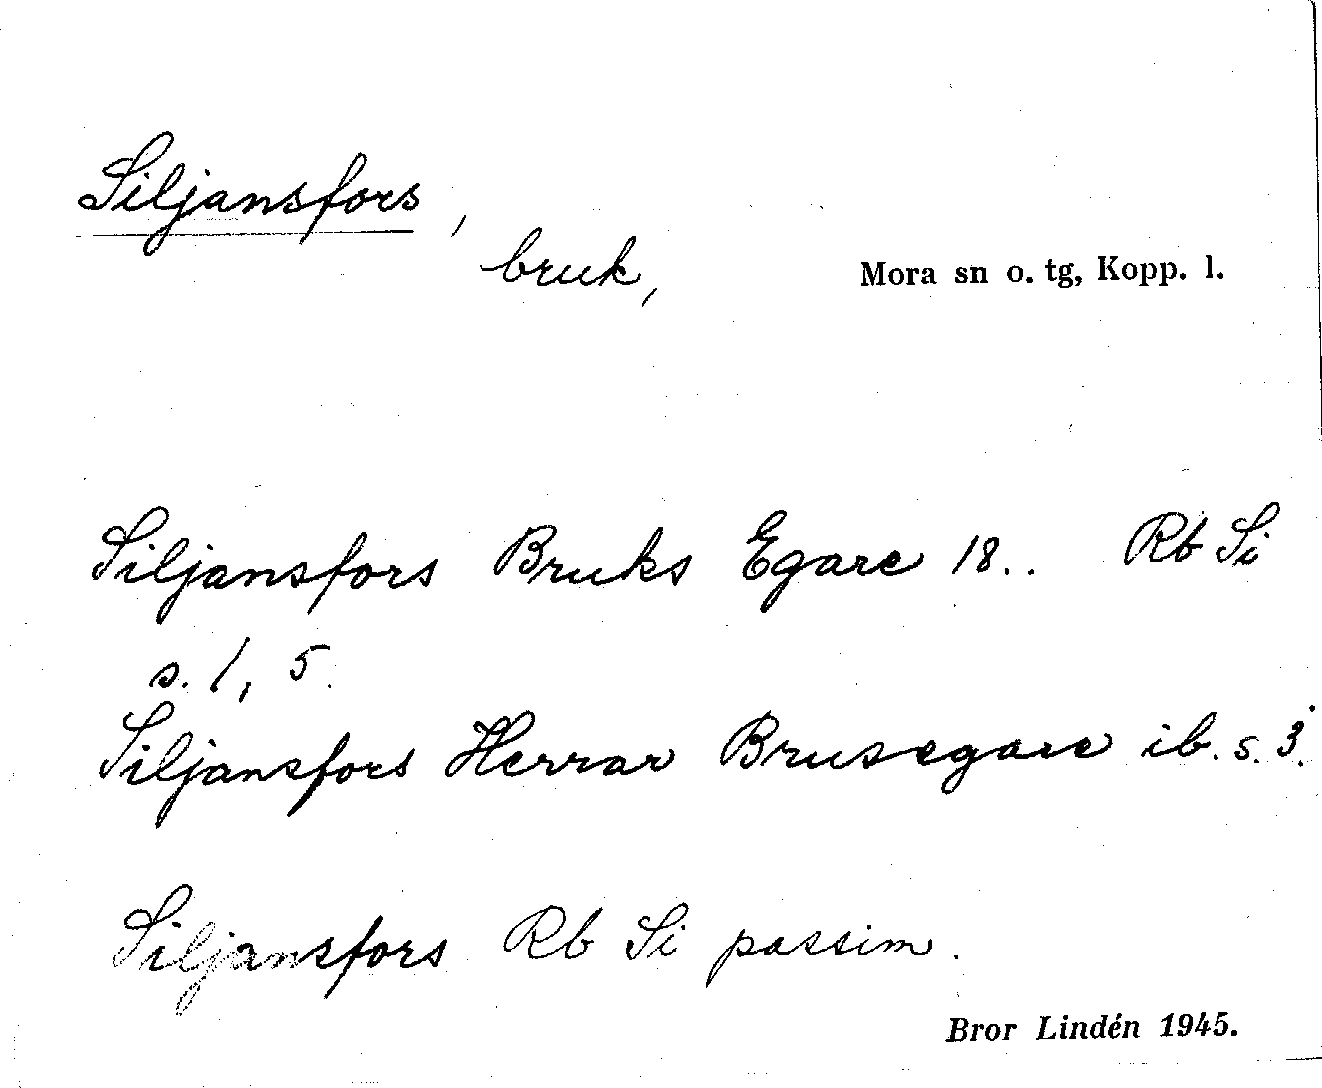 Siljansfors,
bruk, Mora sn o. tg, Kopp. l.
Siljansfors Bruks Egare 18.. Rb Si
s. 1, 5.
Siljansfors Herrar Brusegare ib. s. 3.
Siljansfors Rb Si passim.
Bror Lindén 1945.